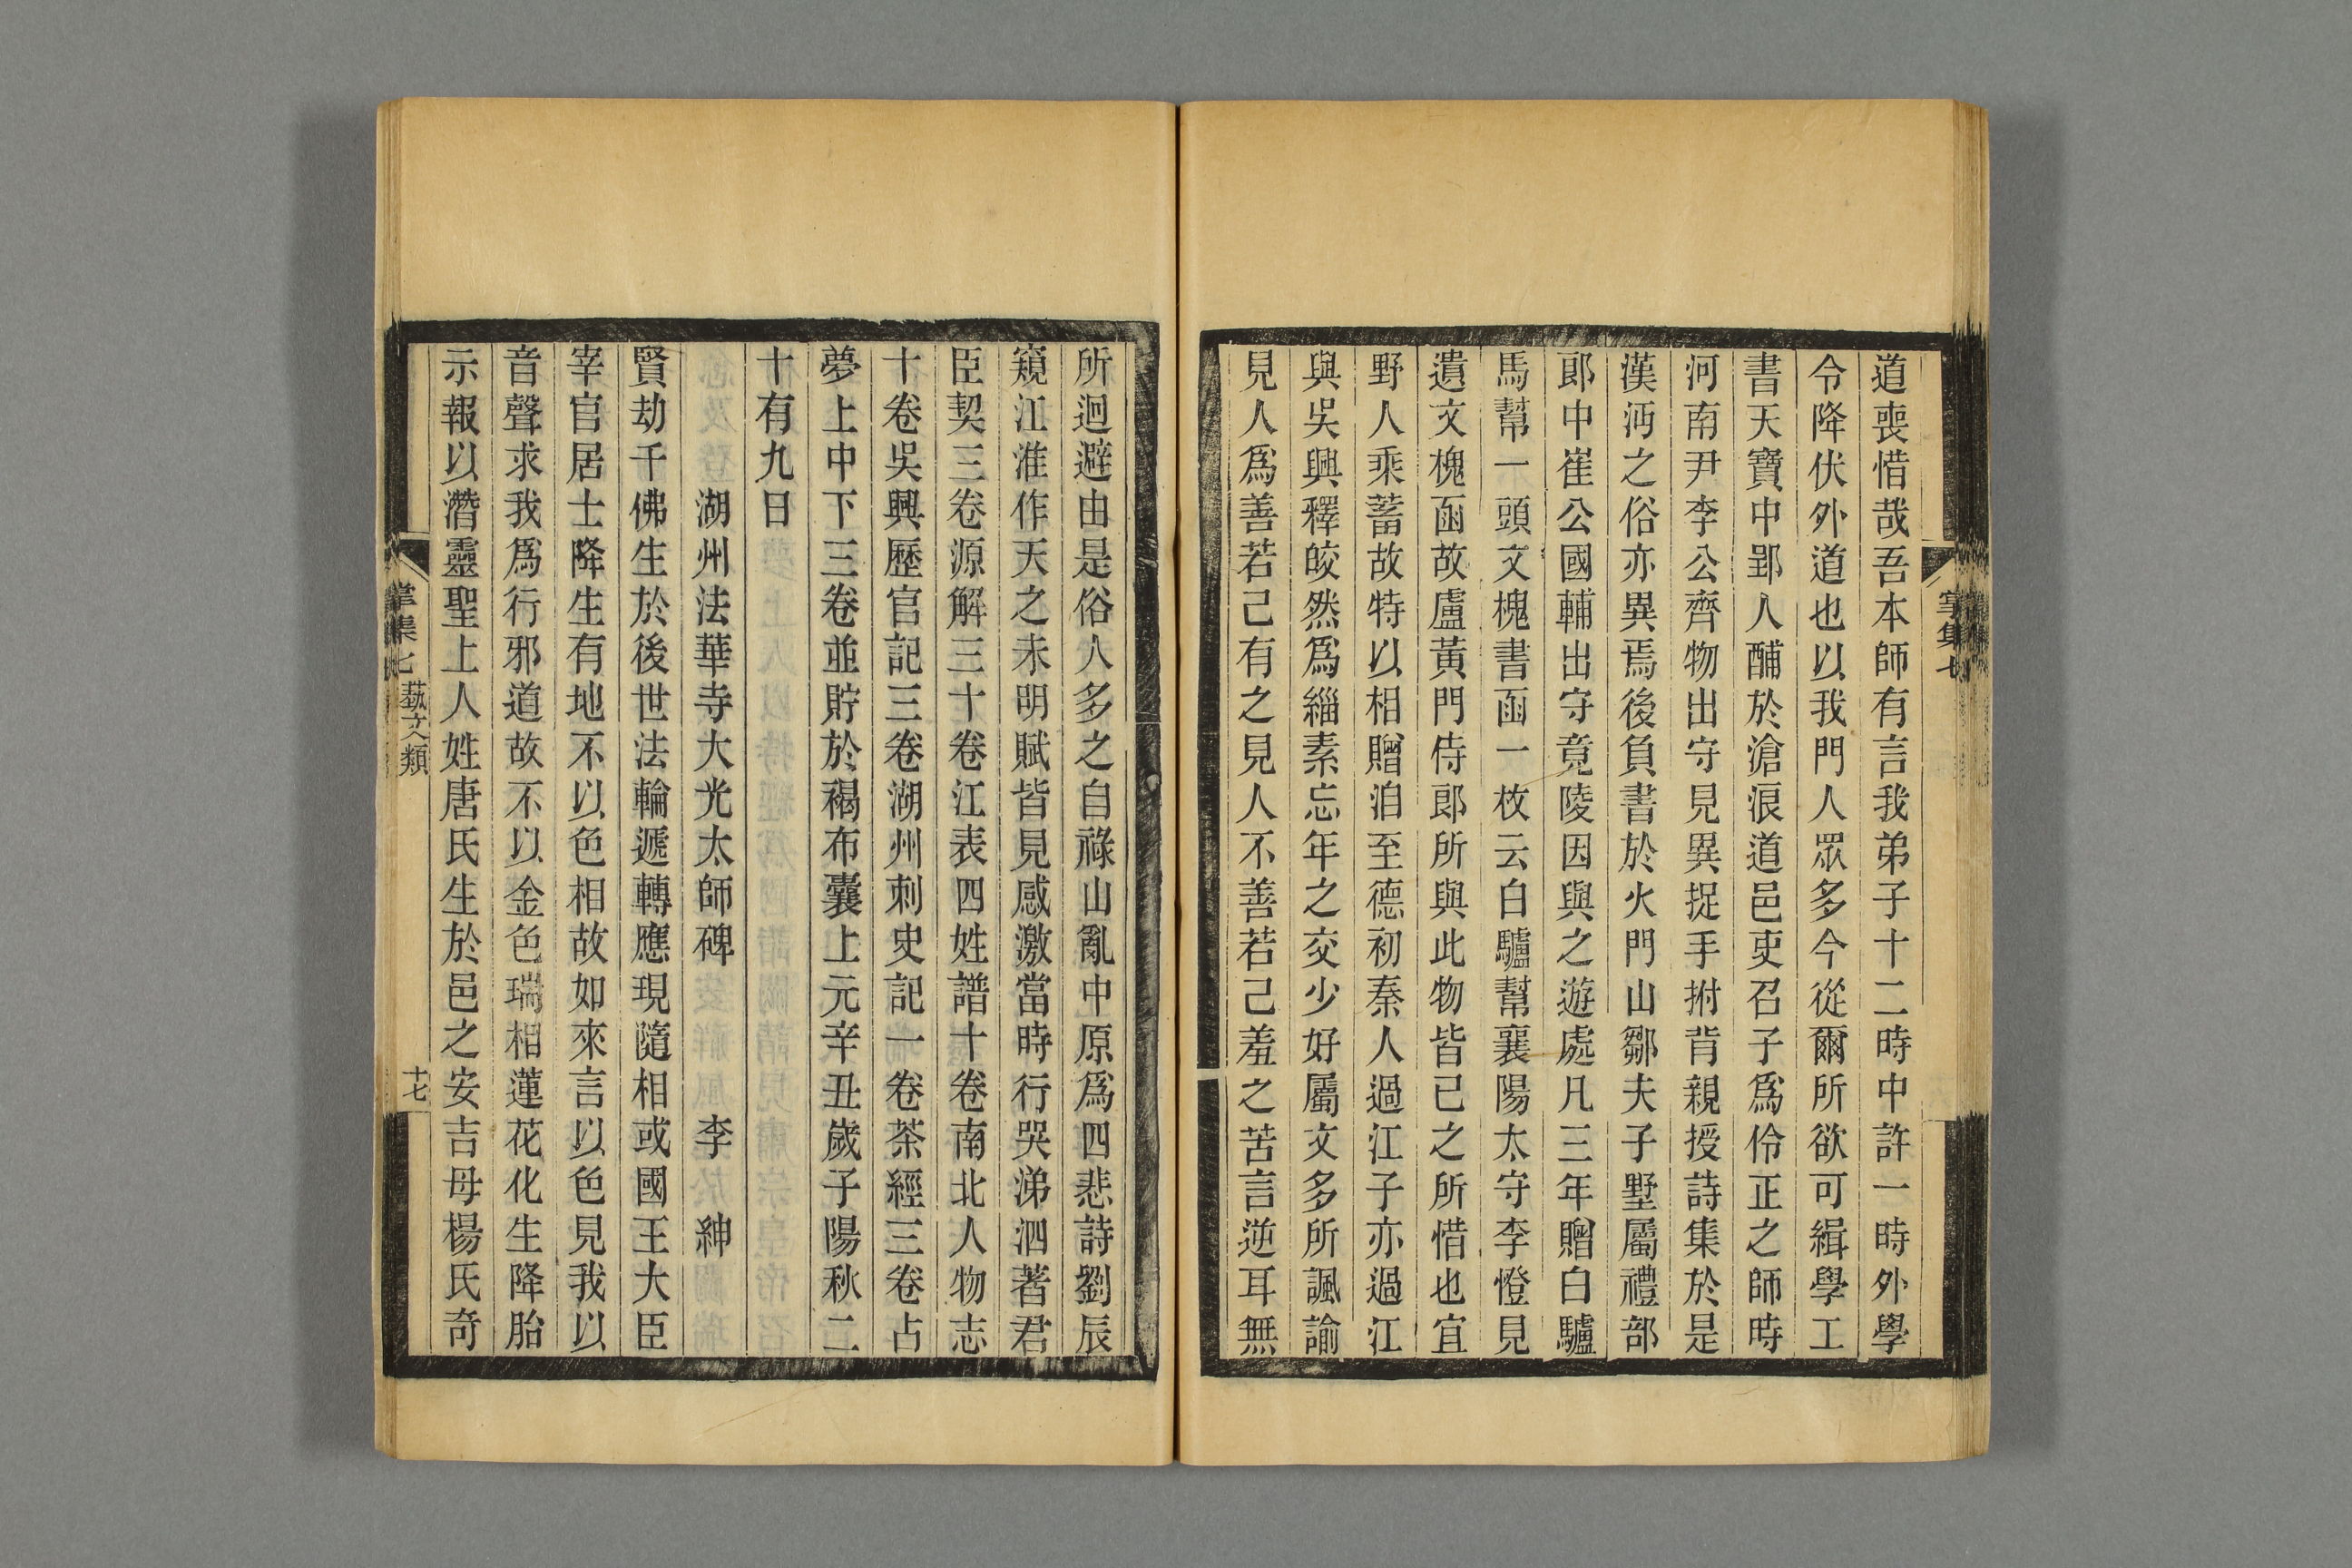 道喪惜哉吾本師有言我弟子十二時中許一時外學
令降伏外道也以我門人眾多今從爾所欲可緝學工
書天寶中郢人酺於滄浪道邑吏召子爲伶正之師時
河南尹李公齊物出守見異捉手拊背親授詩集於是
漢沔之俗亦異焉後負書於火門山鄒夫子墅屬禮部
郎中崔公國輔出守竟陵因與之遊處凡三年贈白驢
馬幫一頭文槐書函一枚云白驢幫襄陽太守李憕見
遺文槐函故盧黃門侍郎所與此物皆已之所惜也宜
野人乘蓄故特以相贈洎至德初秦人過江子亦過江
與吳興釋皎然爲緇素忘年之交少好屬文多所諷諭
見人爲善若己有之見人不善若己羞之苦言逆耳無
所迴避由是俗人多之自祿山亂中原爲四悲詩劉辰
窺江淮作天之未明賦皆見感激當時行哭涕泗著君
臣契三卷源解三十卷江表四姓譜十卷南北人物志
十卷吳興歷官記三卷湖州刺史記一卷茶經三卷占
夢上中下三卷並貯於褐布囊上元辛丑歲子陽秋二
十有九日
湖州法華寺大光太師碑　李　紳
賢劫千佛生於後世法輪遞轉應現隨相或國王大臣
宰官居士降生有地不以色相故如來言以色見我以
音聲求我爲行邪道故不以金色瑞相蓮花化生降胎
示報以潛靈聖上人姓唐氏生於邑之安吉母楊氏奇
掌集七　藝文類　十七